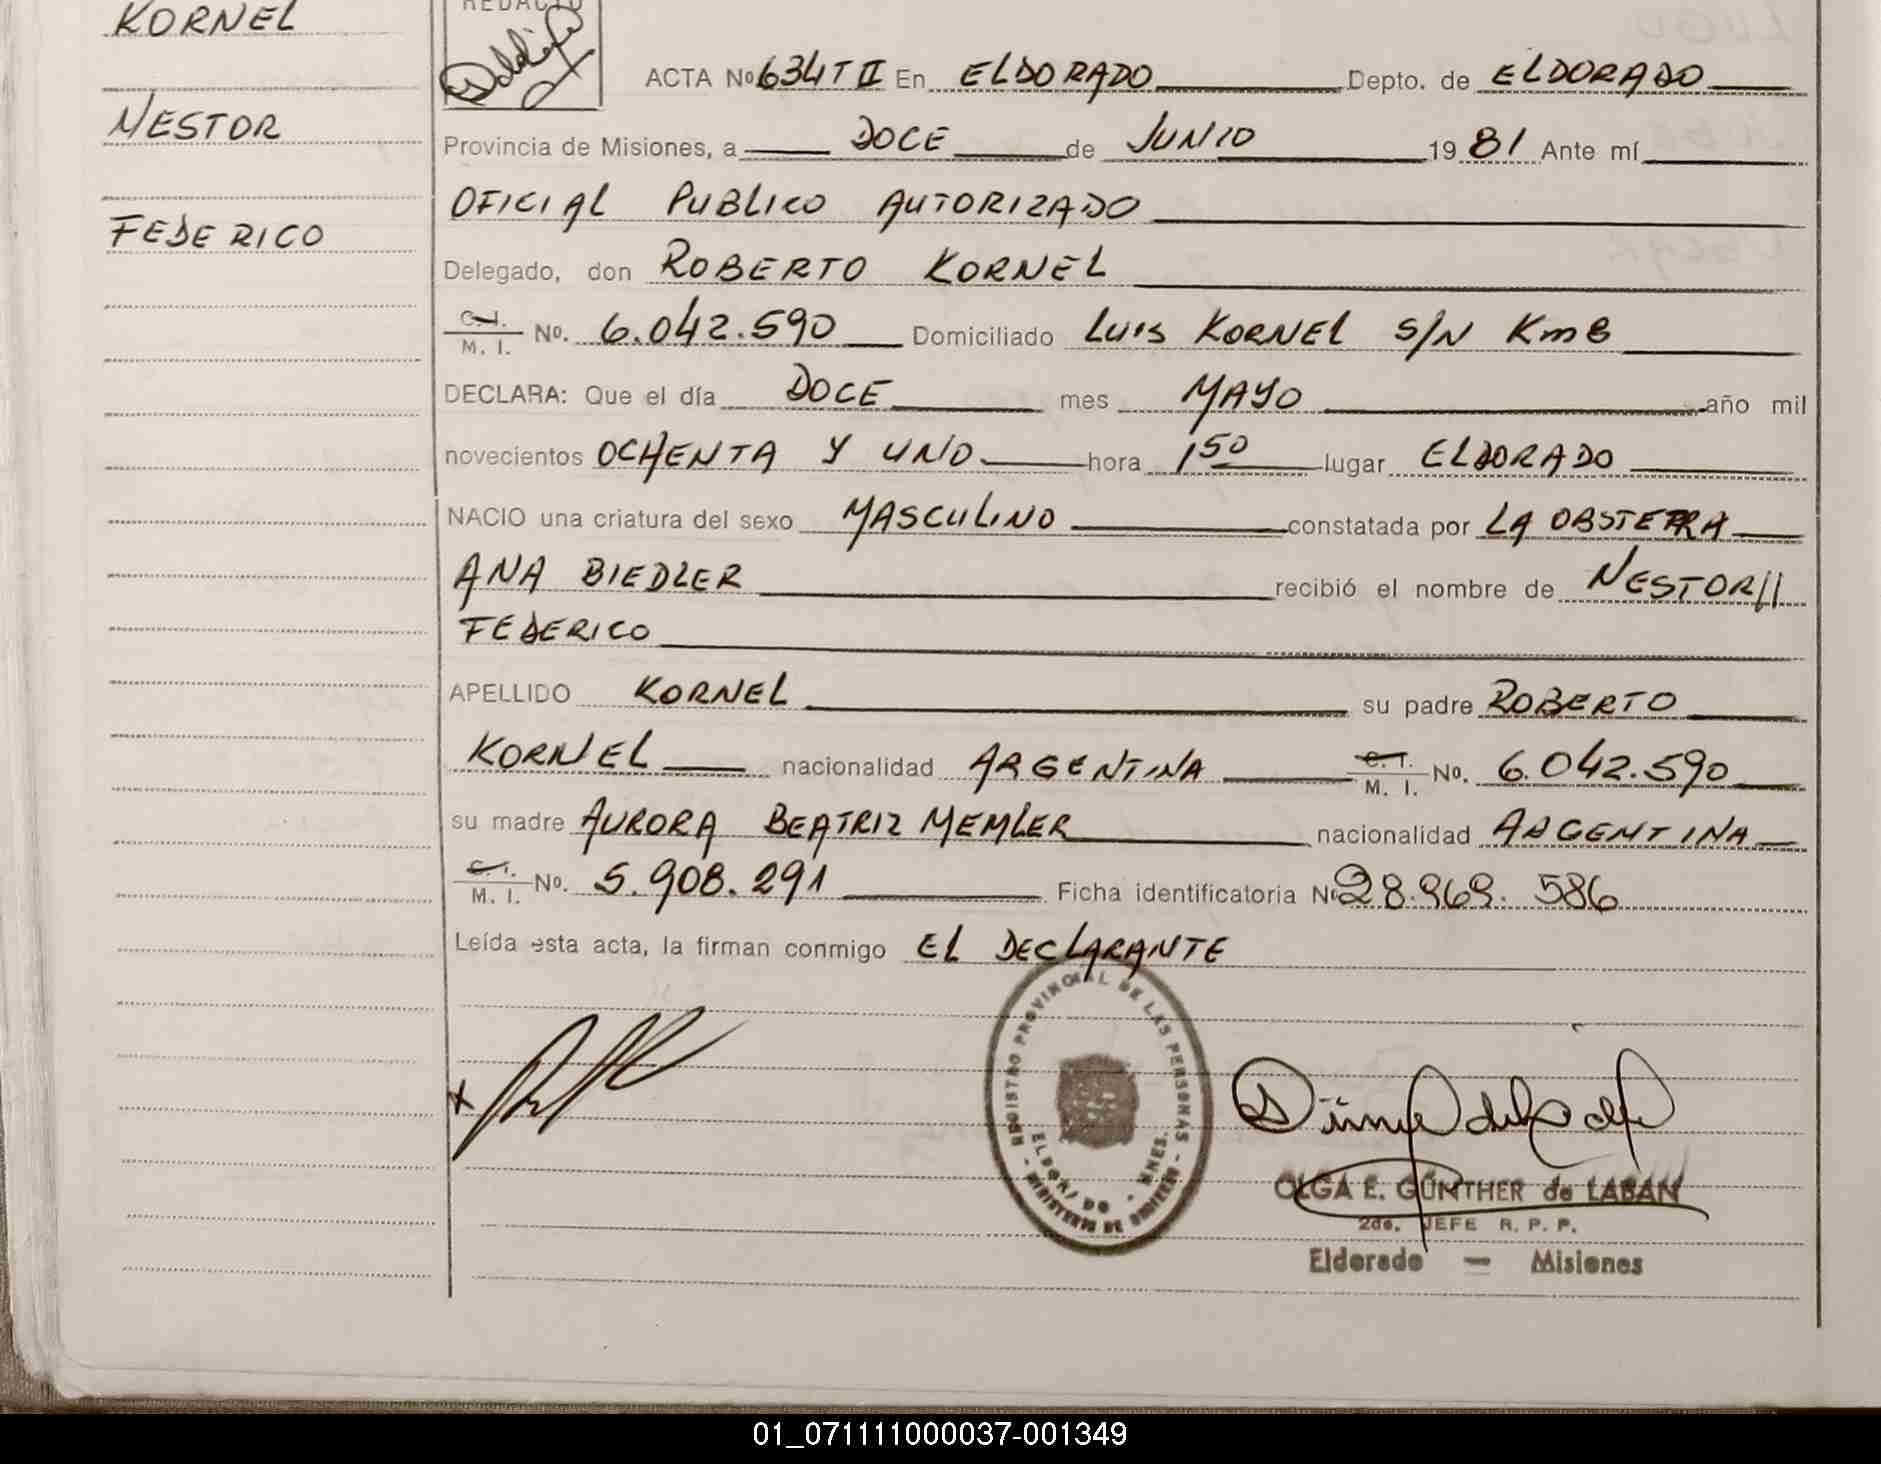 KORNEL
NESTOR
FEDERICO
REDACTO
ACTA No 634 T II En ELDORADO Depto. de ELDORADO
Provincia de Misiones, a DOCE de JUNIO 19 81 Ante mí
OFICIAL PUBLICO AUTORIZADO
Delegado, don ROBERTO KORNEL
C. I. / M. I. No. 6.042.590 Domiciliado LUIS KORNEL S/N Km 8
DECLARA: Que el día DOCE mes MAYO año mil
novecientos OCHENTA Y UNO hora 1 50 lugar ELDORADO
NACIO una criatura del sexo MASCULINO constatada por LA OBSTETRA
ANA BIEDLER recibió el nombre de NESTOR//
FEDERICO
APELLIDO KORNEL su padre ROBERTO
KORNEL nacionalidad ARGENTINA C. I. / M. I. No. 6.042.590
su madre AURORA BEATRIZ MEMLER nacionalidad ARGENTINA
C. I. / M. I. No. 5.908.291 Ficha identificatoria No 28.969.586
Leída esta acta, la firman conmigo EL DECLARANTE
REGISTRO PROVINCIAL DE LAS PERSONAS - MINISTERIO DE GOBIERNO -
ELDORADO - MNES.
OLGA E. GÜNTHER de LABAN
2do. JEFE R. P. P.
Eldorado — Misiones
01_071111000037-001349